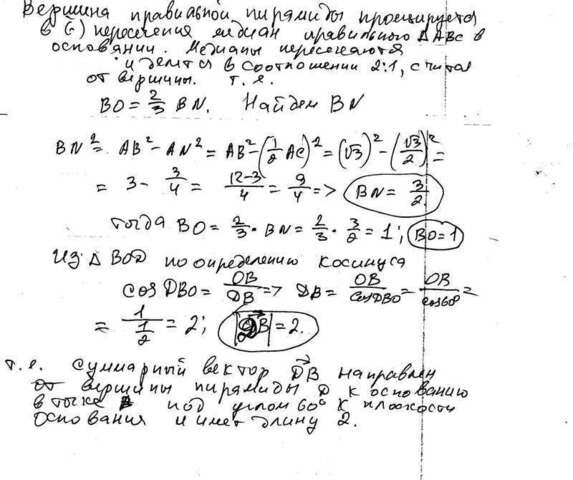 Вершина правильной пирамиды проецируется
в (·) пересечения медиан правильного ΔABC в
основании. Медианы пересекаются
и делятся в соотношении 2:1, считая
от вершины. т. е.
BO = 2/3 BN. Найдем BN
BN² = AB² - AN² = AB² - (1/2 AC)² = (√3)² - (√3/2)² =
= 3 - 3/4 = 12-3/4 = 9/4 => BN = 3/2
тогда BO = 2/3 · BN = 2/3 · 3/2 = 1; BO = 1
Из Δ BOD по определению косинуса
cos DBO = OB/DB => DB = OB/cos DBO = OB/cos 60° =
= 1/(1/2) = 2; |DB| = 2.
т. е. суммарный вектор DB направлен
от вершины пирамиды D к основанию
в точке B под углом 60° к плоскости
основания и имеет длину 2.